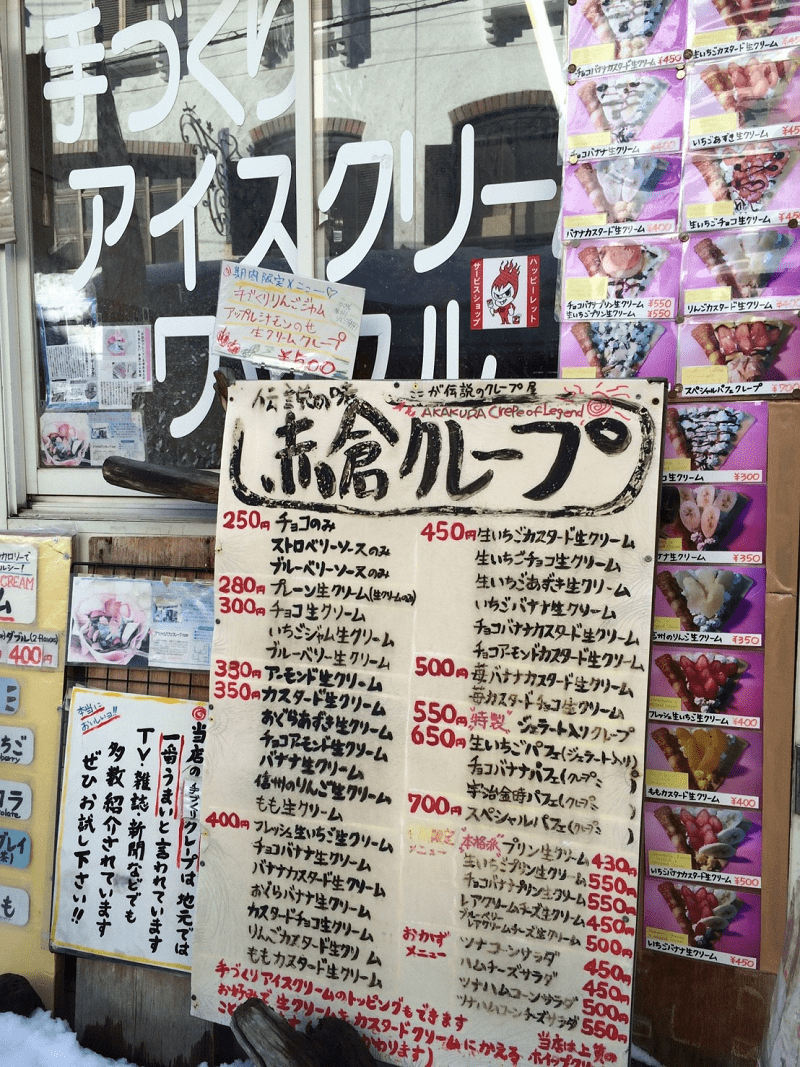 手づくり
アイスクリー
ワッフル
期間限定メニュー♡
手づくりりんごジャム
アップルシナモンのせ
生クリームクレープ
¥500
ハッピーレット
サービスショップ
伝説の味
ここが伝説のクレープ屋
AKAKURA Crepe of Legend
赤倉クレープ
250円 チョコのみ
ストロベリーソースのみ
ブルーベリーソースのみ
280円 プレーン生クリーム(生クリームのみ)
300円 チョコ生クリーム
いちごジャム生クリーム
ブルーベリー生クリーム
330円 アーモンド生クリーム
350円 カスタード生クリーム
おぐらあずき生クリーム
チョコアーモンド生クリーム
バナナ生クリーム
信州のりんご生クリーム
もも生クリーム
400円 フレッシュ生いちご生クリーム
チョコバナナ生クリーム
バナナカスタード生クリーム
おぐらバナナ生クリーム
カスタードチョコ生クリーム
りんごカスタード生クリーム
ももカスタード生クリーム
450円 生いちごカスタード生クリーム
生いちごチョコ生クリーム
生いちごあずき生クリーム
いちごバナナ生クリーム
チョコバナナカスタード生クリーム
チョコアーモンドカスタード生クリーム
500円 苺バナナカスタード生クリーム
苺カスタードチョコ生クリーム
550円 "特製" ジェラート入りクレープ
650円 生いちごパフェ(ジェラート入り)
チョコバナナパフェ(クレープ
宇治金時パフェ(クレープ
700円 スペシャルパフェ(クレープ
限定
メニュー
"本格派" プリン生クリーム 430円
生いちごプリン生クリーム 550円
チョコバナナプリン生クリーム 550円
レアクリームチーズ生クリーム 450円
ブルーベリー
レアクリームチーズ生クリーム 500円
おかず
メニュー
ツナコーンサラダ 450円
ハムチーズサラダ 450円
ツナハムコーンサラダ 500円
ツナハムコーンチーズサラダ 550円
手づくりアイスクリームのトッピングもできます
お好みで生クリームをカスタードクリームにかえる
かわります)
当店は上質の
ホイップクリー
本当に
おいしいヨ!!
当店の手づくりクレープは地元では
一番うまいと言われています
TV・雑誌・新聞などでも
多数紹介されています
ぜひお試し下さい!!
カロリーで
ルシー!
CREAM
ム
ダブル(2 flavor)
400円
チョコバナナカスタード生クリーム ¥450
生いちごカスタード生クリーム
チョコバナナ生クリーム ¥400
いちごあずき生クリーム ¥45
バナナカスタード生クリーム ¥400
生いちごチョコ生クリーム ¥45
チョコバナナプリン生クリーム ¥550
生いちごプリン生クリーム ¥550
りんごカスタード生クリーム
スペシャルパフェクレープ ¥700
生クリーム ¥300
ナナ生クリーム ¥350
信州のりんご生クリーム ¥350
フレッシュ生いちご生クリーム ¥400
ももカスタード生クリーム ¥400
いちごバナナカスタード生クリーム ¥500
いちごバナナ生クリーム ¥450